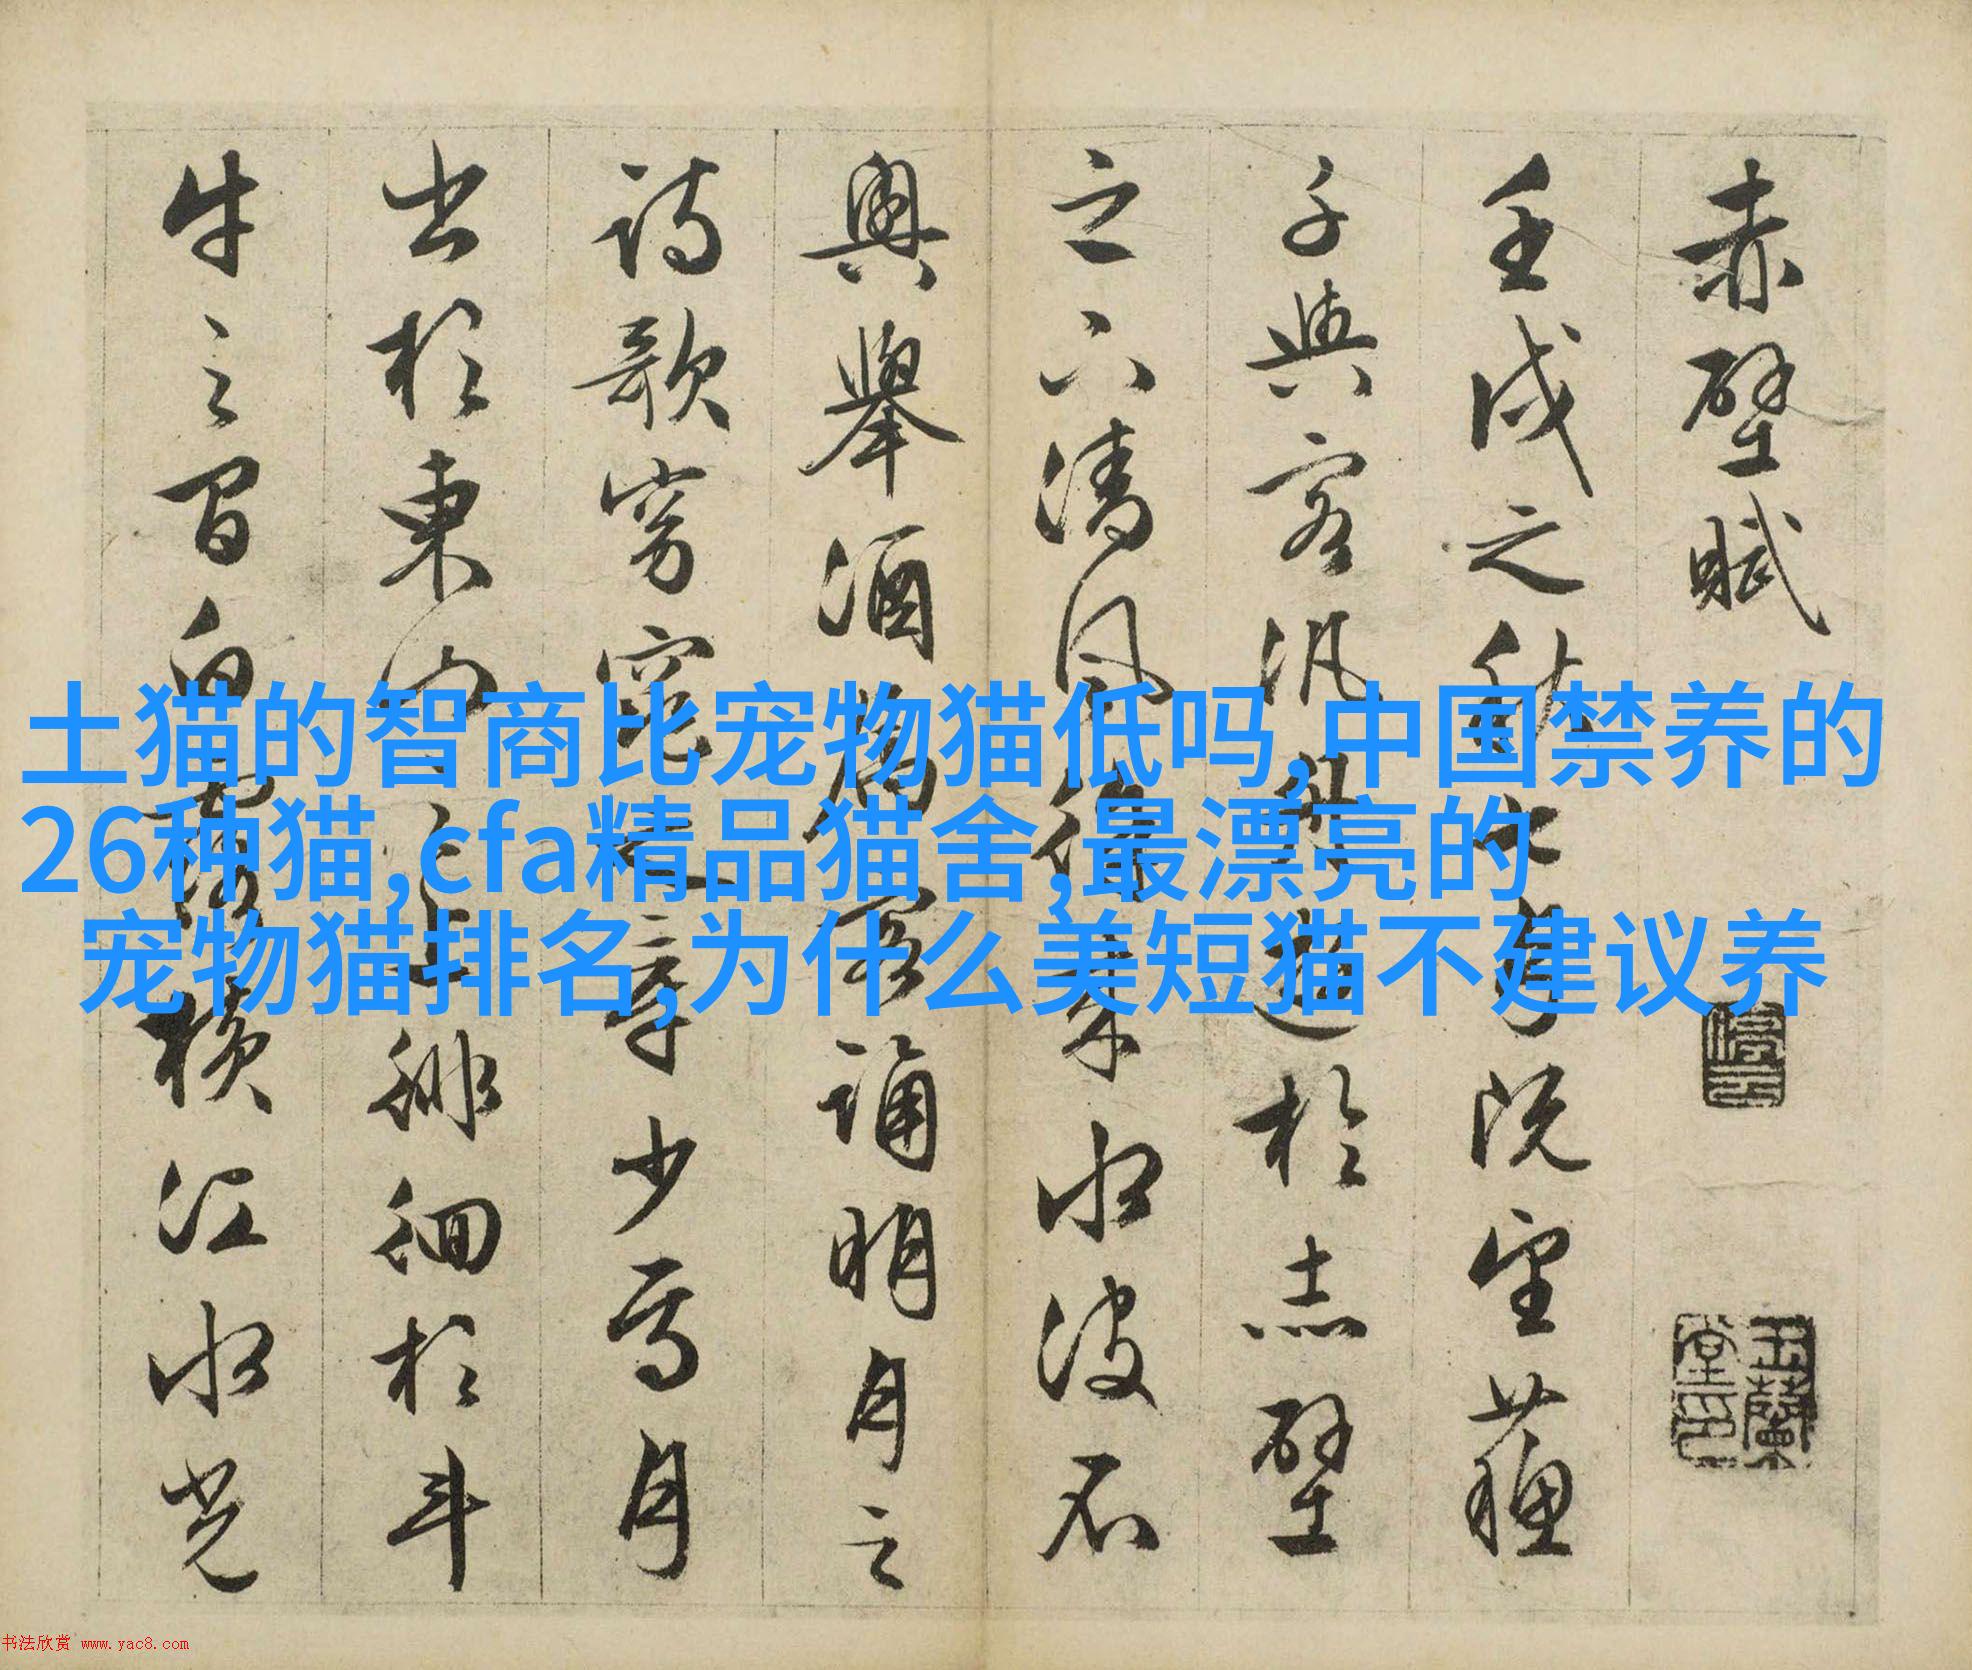 赤壁賦
壬戌之秋七月既望蘓
子與客汎舟遊於赤壁
之下清風徐来水波不
興舉酒属客誦明月之
詩歌窈窕之章少焉月
出於東山之上徘徊於斗
牛之間白露横江水光
停云
玉蘭堂印
土猫的智商比宠物猫低吗,中国禁养的
26种猫,cfa精品猫舍,最漂亮的
宠物猫排名,为什么美短猫不建议养
书法欣赏 www.yac8.com